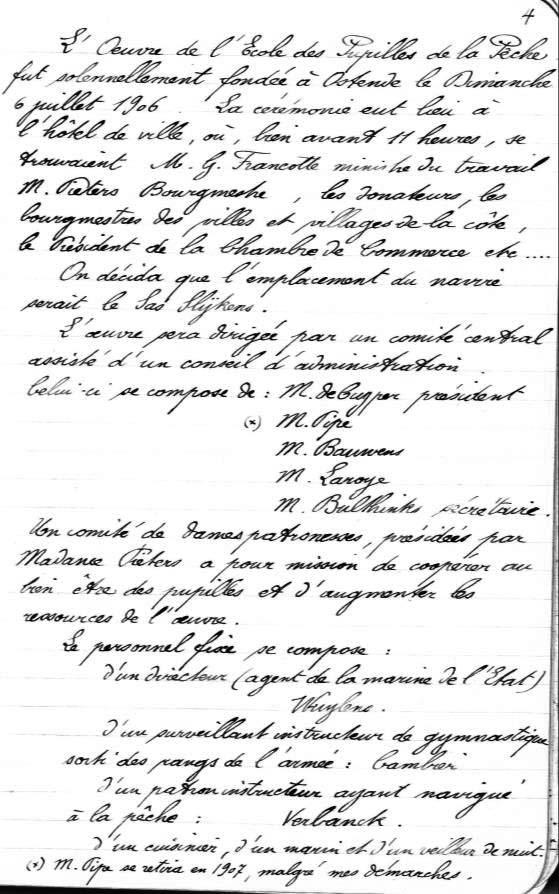 4
L'Oeuvre de l'Ecole des Pupilles de la Pêche
fut solennellement fondée à Ostende le Dimanche
6 juillet 1906. La cérémonie eut lieu à
l'hôtel de ville, où, bien avant 11 heures, se
trouvaient M. G. Francotte ministre du travail
M. Pieters Bourgmestre, les donateurs, les
bourgmestres des villes et villages de la côte,
le Président de la Chambre de Commerce etc ....
On décida que l'emplacement du navire
serait le Sas Slijkens.
L'œuvre sera dirigée par un comité central
assisté d'un conseil d'administration.
Celui-ci se compose de : M. deCuyper président
(x) M. Pipe
M. Bauwens
M. Laroye
M. Bulthinks sécrétaire.
Un comité de dames patronesses, présidées par
Madame Pieters a pour mission de coopérer au
bien être des pupilles et d'augmenter les
ressources de l'œuvre.
Le personnel fixe se compose :
d'un directeur (agent de la marine de l'Etat)
Wuylens.
d'un surveillant instructeur de gymnastique
sorti des rangs de l'armée : Cambier
d'un patron instructeur ayant navigué
à la pêche : Verbanck.
d'un cuisinier, d'un marin et d'un veilleur de nuit.
(x) M. Pipe se retira en 1907, malgré mes démarches.